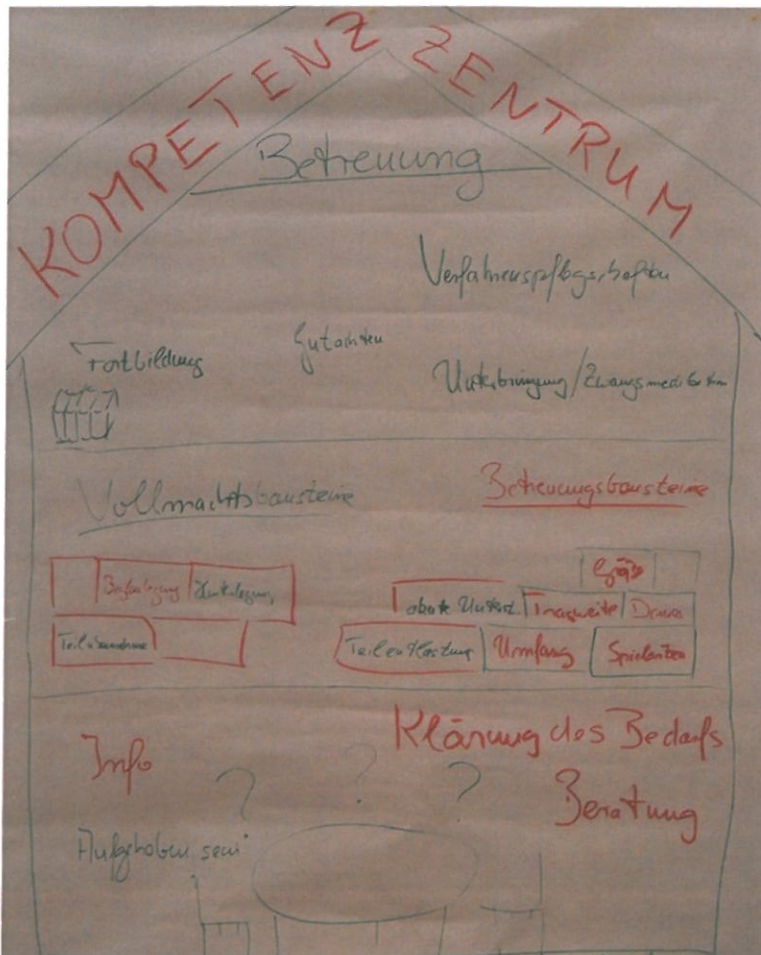 KOMPETENZ ZENTRUM
Betreuung
Verfahrenspflegschaften
Fortbildung
Gutachten
Unterbringung/Zwangsmedikation
Vollmachtsbausteine
Betreuungsbausteine
Hinterlegung
Teilübernahme
Größe
Tragweite
Dauer
Teilentlastung
Umfang
Info
Klärung des Bedarfs
? ? ?
Beratung
Aufgehoben sein